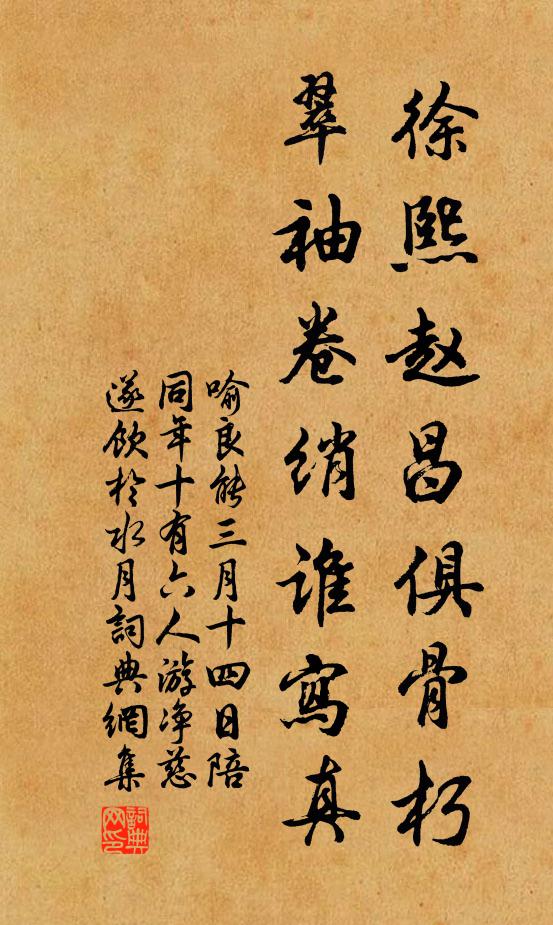 徐熙赵昌俱骨朽
翠袖卷绡谁寫真
喻良能三月十四日陪
同年十有六人游净慈
遂飲於水月詞典網集
詞典
网印